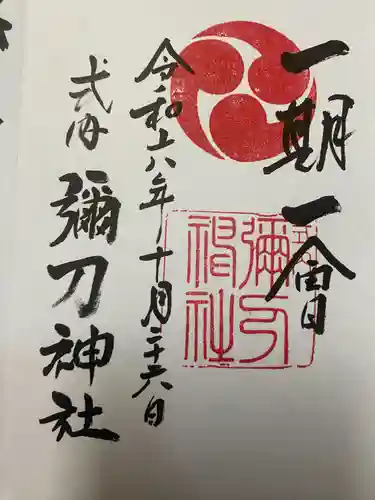 一期一會
令和六年十月二十六日
式内 彌刀神社
式内
彌刀
神社